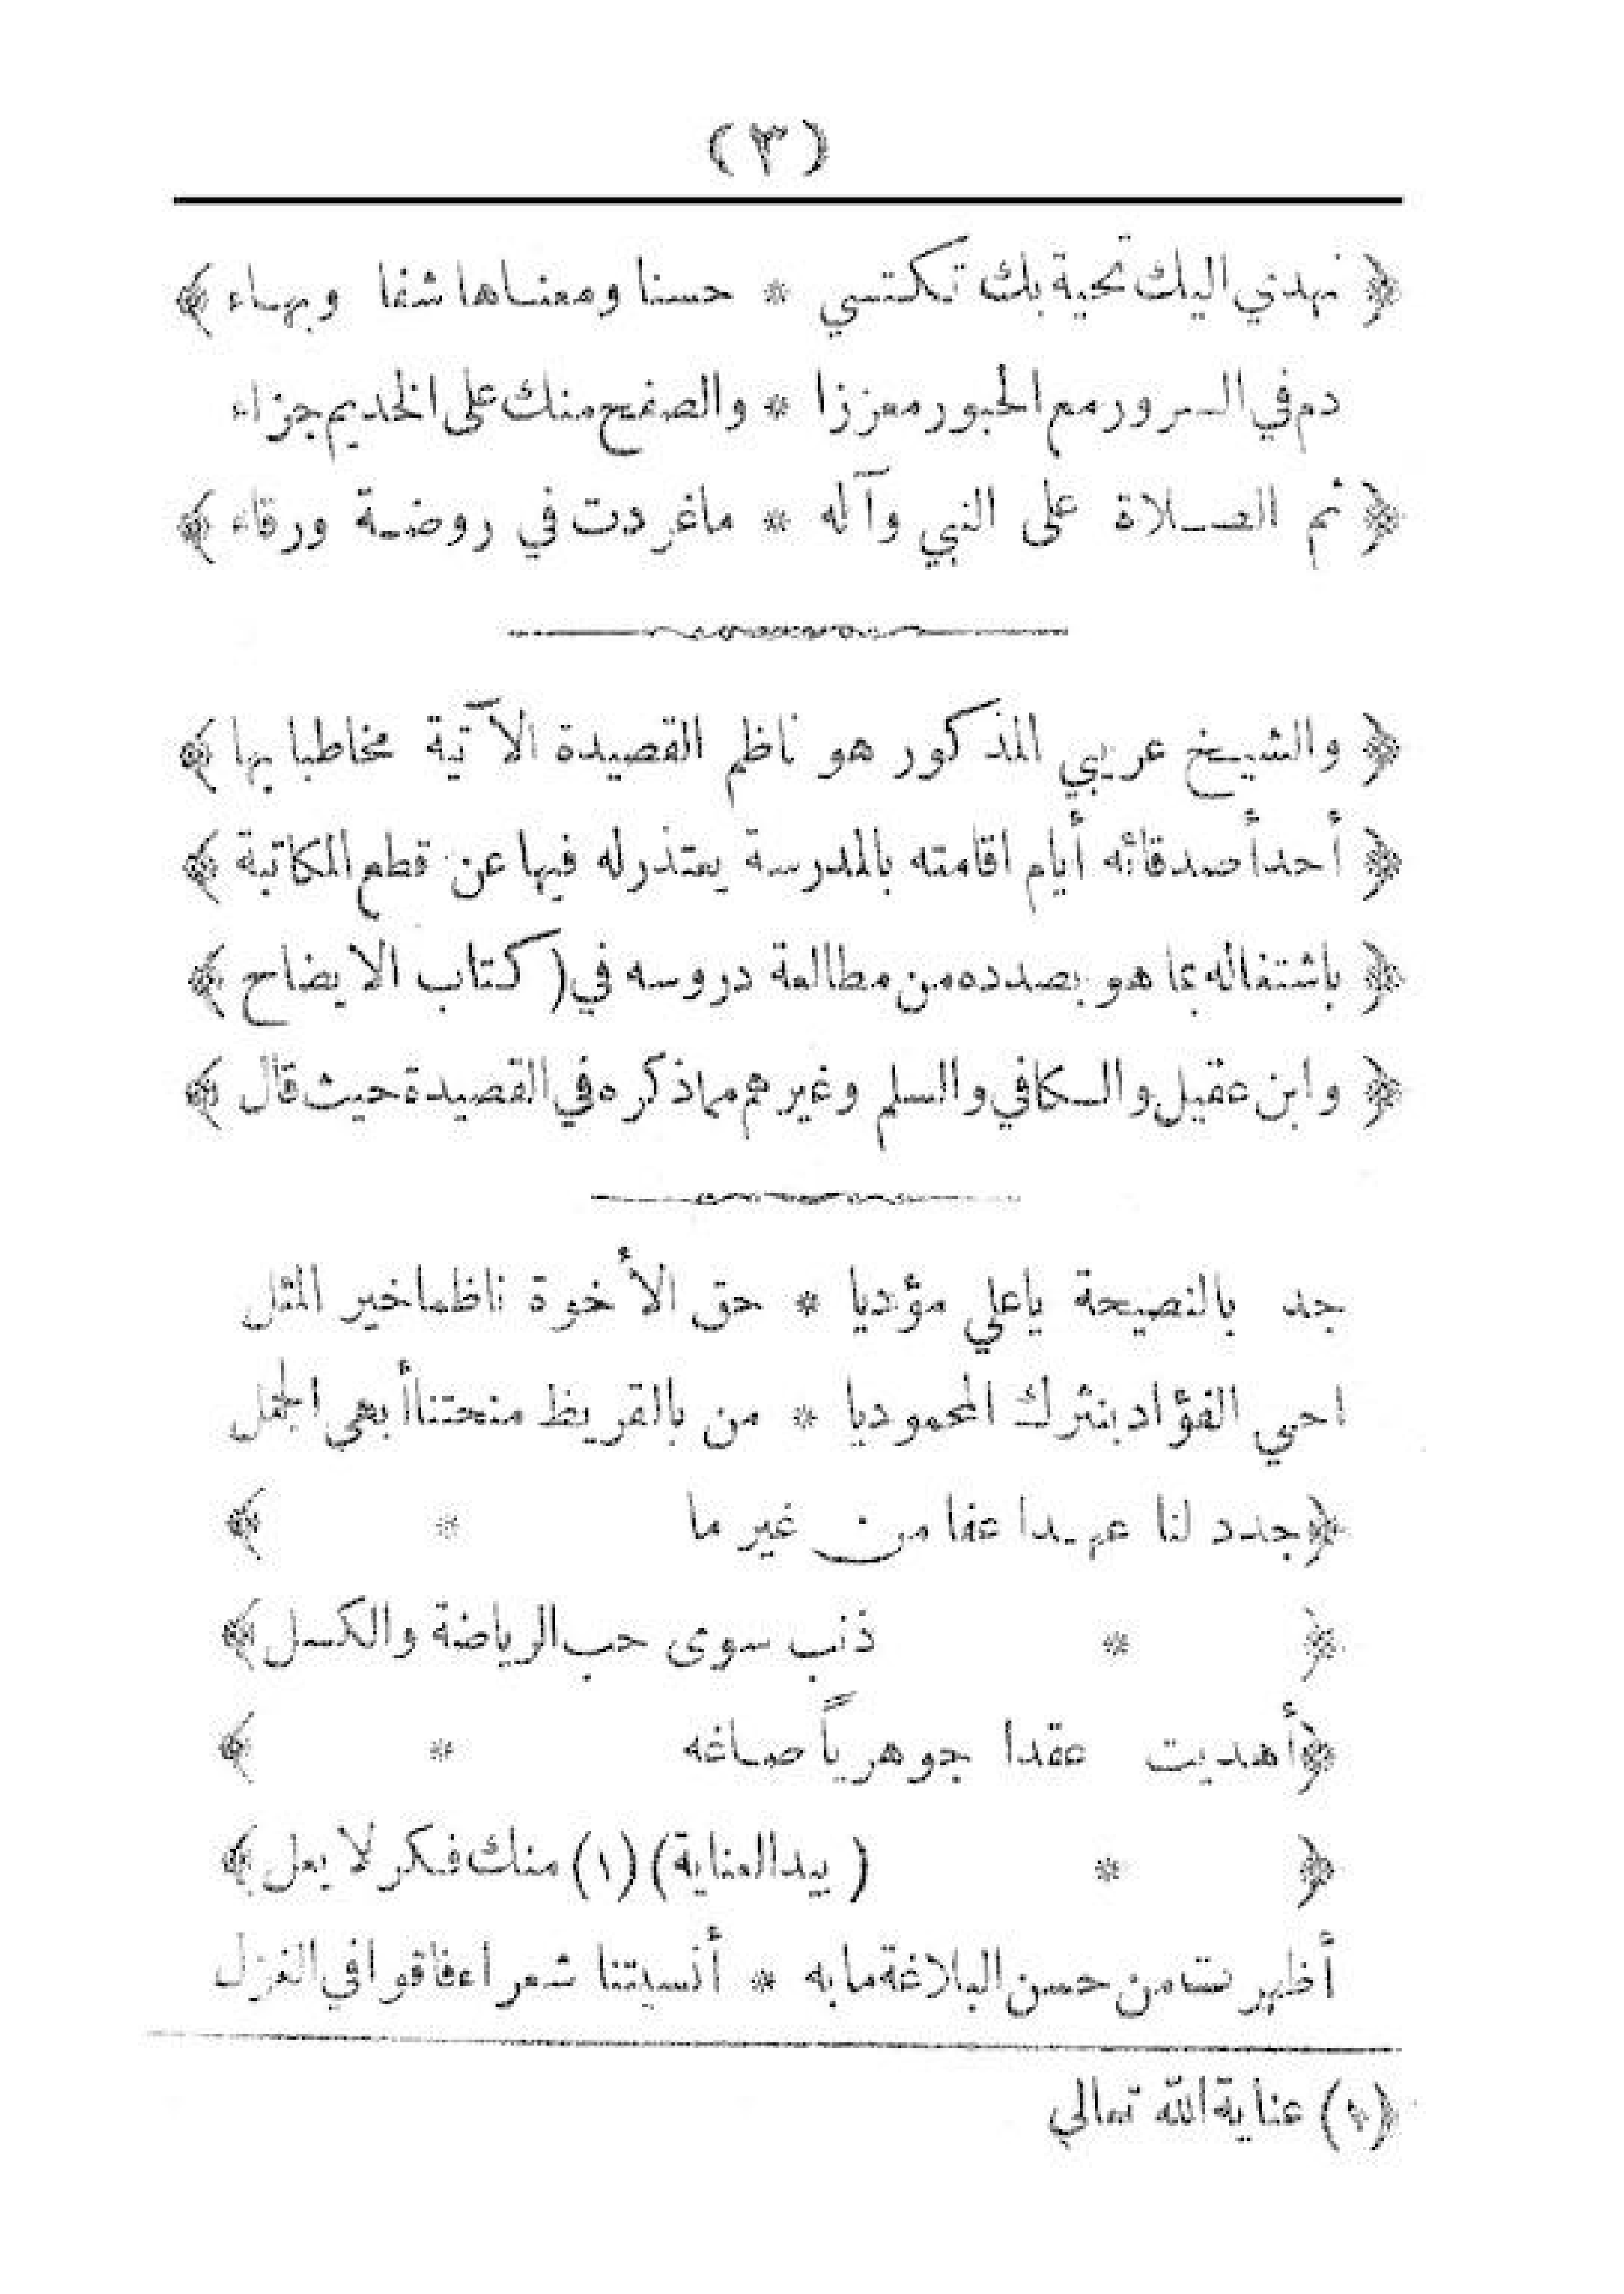 (٣)
﴿ نهدي اليك تحية بك تكتسي * حسنا ومعناها شفا وبهاء ﴾
دم في السرور مع الحبور معززا * والصفح منك على الخديم جزاء
﴿ ثم الصلاة على النبي وآله * ماغردت في روضة ورقاء ﴾
﴿ والشيخ عربي المذكور هو ناظم القصيدة الآتية مخاطبا بها ﴾
﴿ أحد أصدقائه أيام اقامته بالمدرسة يعتذر له فيها عن قطع المكاتبة ﴾
﴿ باشتغاله بما هو بصدده من مطالعة دروسه في (كتاب الايضاح ﴾
﴿ وابن عقيل والكافي والسلم وغيرهم مما ذكره في القصيدة حيث قال ﴾
جد بالنصيحة ياعلي مؤديا * حق الأخوة ناظما خير المثل
احيي الفؤاد بنثرك المحمود يا * من بالقريظ منحتنا أبهى الجمل
﴿ جدد لنا عهدا عفا من غير ما * ﴾
﴿ * ذنب سوى حب الرياضة والكسل ﴾
﴿ أهديت عقدا جوهرياً صاغه * ﴾
﴿ * ( بيد العناية) (١) منك فكر لا يمل ﴾
أظهرت من حسن البلاغة ما به * أنسيتنا شعرا عفاقوا في الغزل
(١) عناية الله تعالي